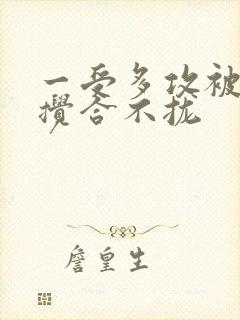 一受多攻被
攪合不拢
詹皇生